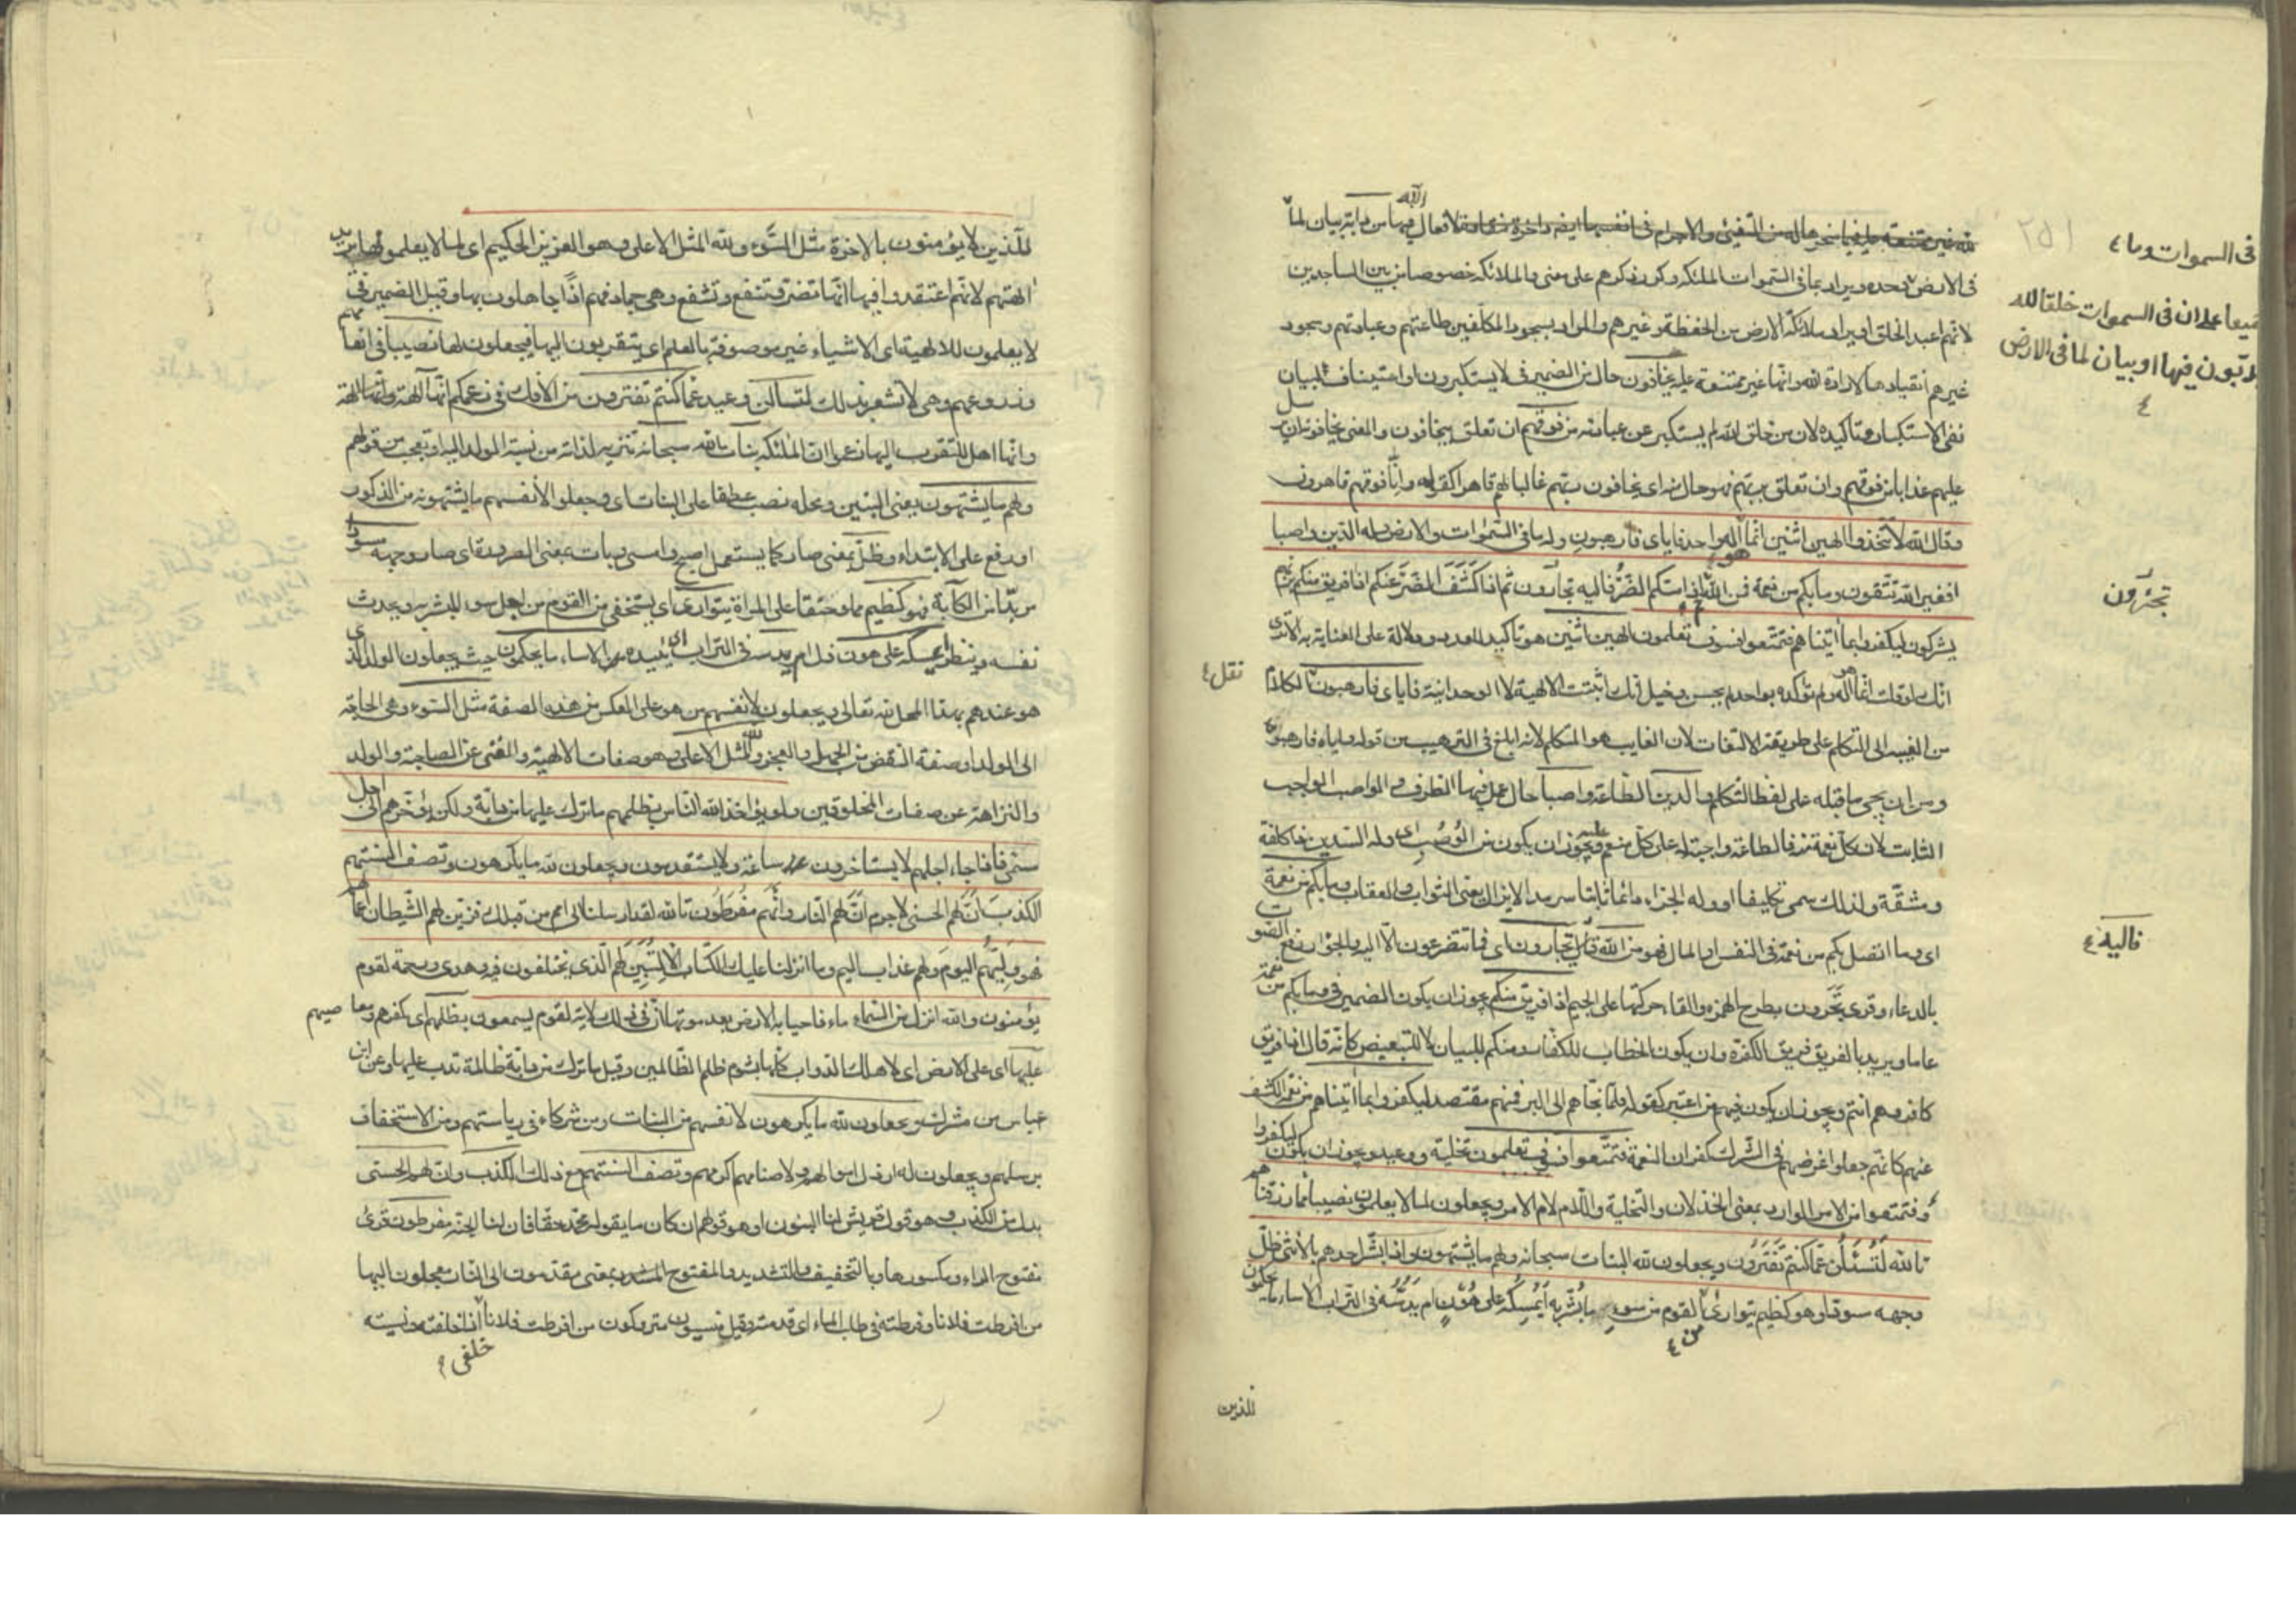 لله غير ممتنعة عليه فيما سخرها له من التفيئ والاجرام في انفسها ايضا داخرة منقادة لافعال الله فيها من دابة بيان لما
في الارض وحده ويراد بما في السموات الملئكة وكرر ذكرهم على معنى والملائكة خصوصا من بين الساجدين
لانهم اعبد الخلق او يراد ملائكة الارض من الحفظة وغيرهم والمراد بسجود المكلفين طاعتهم وعبادتهم وسجود
غيرهم انقيادها لارادة الله وانها غير ممتنعة عليه يخافون حال من الضمير في لا يستكبرون او استيناف لبيان
نفى الاستكبار وتاكيده لان من خاف الله لم يستكبر عن عبادته من فوقهم ان تعلق بيخافون والمعنى يخافونه ان يرسل
عليهم عذابا من فوقهم وان تعلق بربهم فهو حال منه اى يخافون ربهم غالبا لهم قاهرا كقوله وانا فوقهم قاهرون
وقال الله لا تتخذوا الهين اثنين انما هو اله واحد فاياى فارهبون وله ما في السموات والارض وله الدين واصبا
افغير الله تتقون وما بكم من نعمة فمن الله ثم اذا مسكم الضر فاليه تجأرون ثم اذا كشف الضر عنكم اذا فريق منكم بربهم
يشركون ليكفروا بما اتيناهم فتمتعوا فسوف تعلمون الهين اثنين هو تاكيد للعدد ودلالة على العناية به الا ترى
انك لو قلت انما هو اله ولم تؤكده بواحد لم يحسن وخيل انك اثبتت الالهية لا الوحدانية فاياى فارهبون نقل الكلام
من الغيبة الى التكلم على طريقة الالتفات لان الغايب هو المتكلم لانه ابلغ في الترهيب من قوله واياه فارهبون
ومن ان يجئ ما قبله على لفظ التكلم والدين الطاعة واصبا حال عمل فيها الظرف والواصب الواجب
الثابت لان كل نعمة منه فالطاعة واجبة له على كل منعم عليه ويجوز ان يكون من الوصب اى وله الدين ذا كلفة
ومشقة ولذلك سمى تكليفا او وله الجزاء دائما ثابتا سرمدا لا يزال يعنى الثواب والعقاب وما بكم من نعمة
اى وما اتصل بكم من نعمة في النفس او المال فهو من الله فاليه تجأرون اى فما تتضرعون الا اليه والجؤار رفع الصوت
بالدعاء وقرى تجرون بطرح الهمزة والقاء حركتها على الجيم اذا فريق منكم يجوز ان يكون الضمير في وما بكم من نعمة
عاما ويريد بالفريق فريق الكفرة وان يكون الخطاب للكفار ومنكم للبيان لا للتبعيض كانه قال اذا فريق
كافر وهم انتم ويجوز ان يكون فيهم من اعتبر كقوله فلما نجاهم الى البر فمنهم مقتصد ليكفروا بما اتيناهم من نعمة الكشف
عنهم كانهم جعلوا غرضهم في الشرك كفران النعمة فتمتعوا فسوف تعلمون تخلية ووعيد ويجوز ان يكون ليكفروا
وفتمتعوا من الامر الوارد بمعنى الخذلان والتخلية واللام لام الامر ويجعلون لما لا يعلمون نصيبا مما رزقناهم
تالله لتسئلن عما كنتم تفترون ويجعلون لله البنات سبحانه ولهم ما يشتهون واذا بشر احدهم بالانثى ظل
وجهه مسودا وهو كظيم يتوارى من القوم من سوء ما بشر به ايمسكه على هون ام يدسه في التراب الا ساء ما يحكمون
للذين
٢٥١
في السموات وما
جميعا على ان في السموات خلقا لله
يدبون فيها او بيان لما في الارض
تجئرون
فاليه
للذين لا يؤمنون بالاخرة مثل السوء ولله المثل الاعلى وهو العزيز الحكيم اى لما لا يعلمونها يريد
الهتهم لانهم اعتقدوا فيها انها تضر وتنفع وتشفع وهي جماد فهم اذا جاهلون بها وقيل الضمير في
لا يعلمون للالهية اى الاشياء غير موصوفة بالعلم اى يتقربون اليها فيجعلون لها نصيبا في انعامهم
وزروعهم وهي لا تشعر بذلك لتسالن وعيد عما كنتم تفترون من الافك في زعمكم انها آلهة وانها الهة
وانها اهل للتقرب اليها زعموا ان الملئكة بنات الله سبحانه تنزيه لذاته من نسبة الولد اليه او تعجب من قولهم
ولهم ما يشتهون يعنى البنين ومحله نصب عطفا على البنات اى وجعلوا لانفسهم ما يشتهونه من الذكور
او رفع على الابتداء وظل بمعنى صار كما يستعمل اصبح وامسى وبات بمعنى الصيرورة اى صار وجهه مسودا
مربدا من الكآبة فهو كظيم مملو حنقا على المراة يتوارى اى يستخفى من القوم من اجل سوء المبشر به ويحدث
نفسه وينظر ايمسكه على هون وذل ام يدسه في التراب اى يئيده الا ساء ما يحكمون حيث يجعلون الولد الذى
هو عندهم بهذا المحل لله تعالى ويجعلون لانفسهم من هو على العكس من هذه الصفة مثل السوء وهي الحاجة
الى الولد او صفة النقض من الجهل والعجز ولله المثل الاعلى وهو صفات الالهية والغنى عن الصاحبة والولد
والنزاهة عن صفات المخلوقين ولو يؤاخذ الله الناس بظلمهم ما ترك عليها من دابة ولكن يؤخرهم الى اجل
مسمى فاذا جاء اجلهم لا يستاخرون ساعة ولا يستقدمون ويجعلون لله ما يكرهون وتصف السنتهم
الكذب ان لهم الحسنى لا جرم ان لهم النار وانهم مفرطون تالله لقد ارسلنا الى امم من قبلك فزين لهم الشيطان اعمالهم
فهو وليهم اليوم ولهم عذاب اليم وما انزلنا عليك الكتاب الا لتبين لهم الذى اختلفوا فيه وهدى ورحمة لقوم
يؤمنون والله انزل من السماء ماء فاحيا به الارض بعد موتها ان في ذلك لاية لقوم يسمعون بظلمهم اى بكفرهم ومعاصيهم
عليها اى على الارض اى لاهلك الدواب كلها بشوم ظلم الظالمين وقيل ما ترك من دابة ظالمة تدب عليها وعن ابن
عباس من مشرك ويجعلون لله ما يكرهون لانفسهم من البنات ومن شركاء في رياستهم ومن الاستخفاف
برسلهم ويجعلون له ارذل اموالهم ولاصنامهم اكرمها وتصف السنتهم مع ذلك الكذب وان لهم الحسنى
بدل من الكذب وهو قول قريش لنا البنون او هو قولهم ان كان ما يقوله محمد حقا فان لنا الجنة مفرطون قرئ
مفتوح الراء ومكسورها وبالتخفيف والتشديد والمفتوح المشدد بمعنى مقدمون الى النار معجلون اليها
من افرطت فلانا وفرطته في طلب الماء اى قدمته وقيل منسيون متروكون من افرطت فلانا خلفى اذا خلفته ونسيته